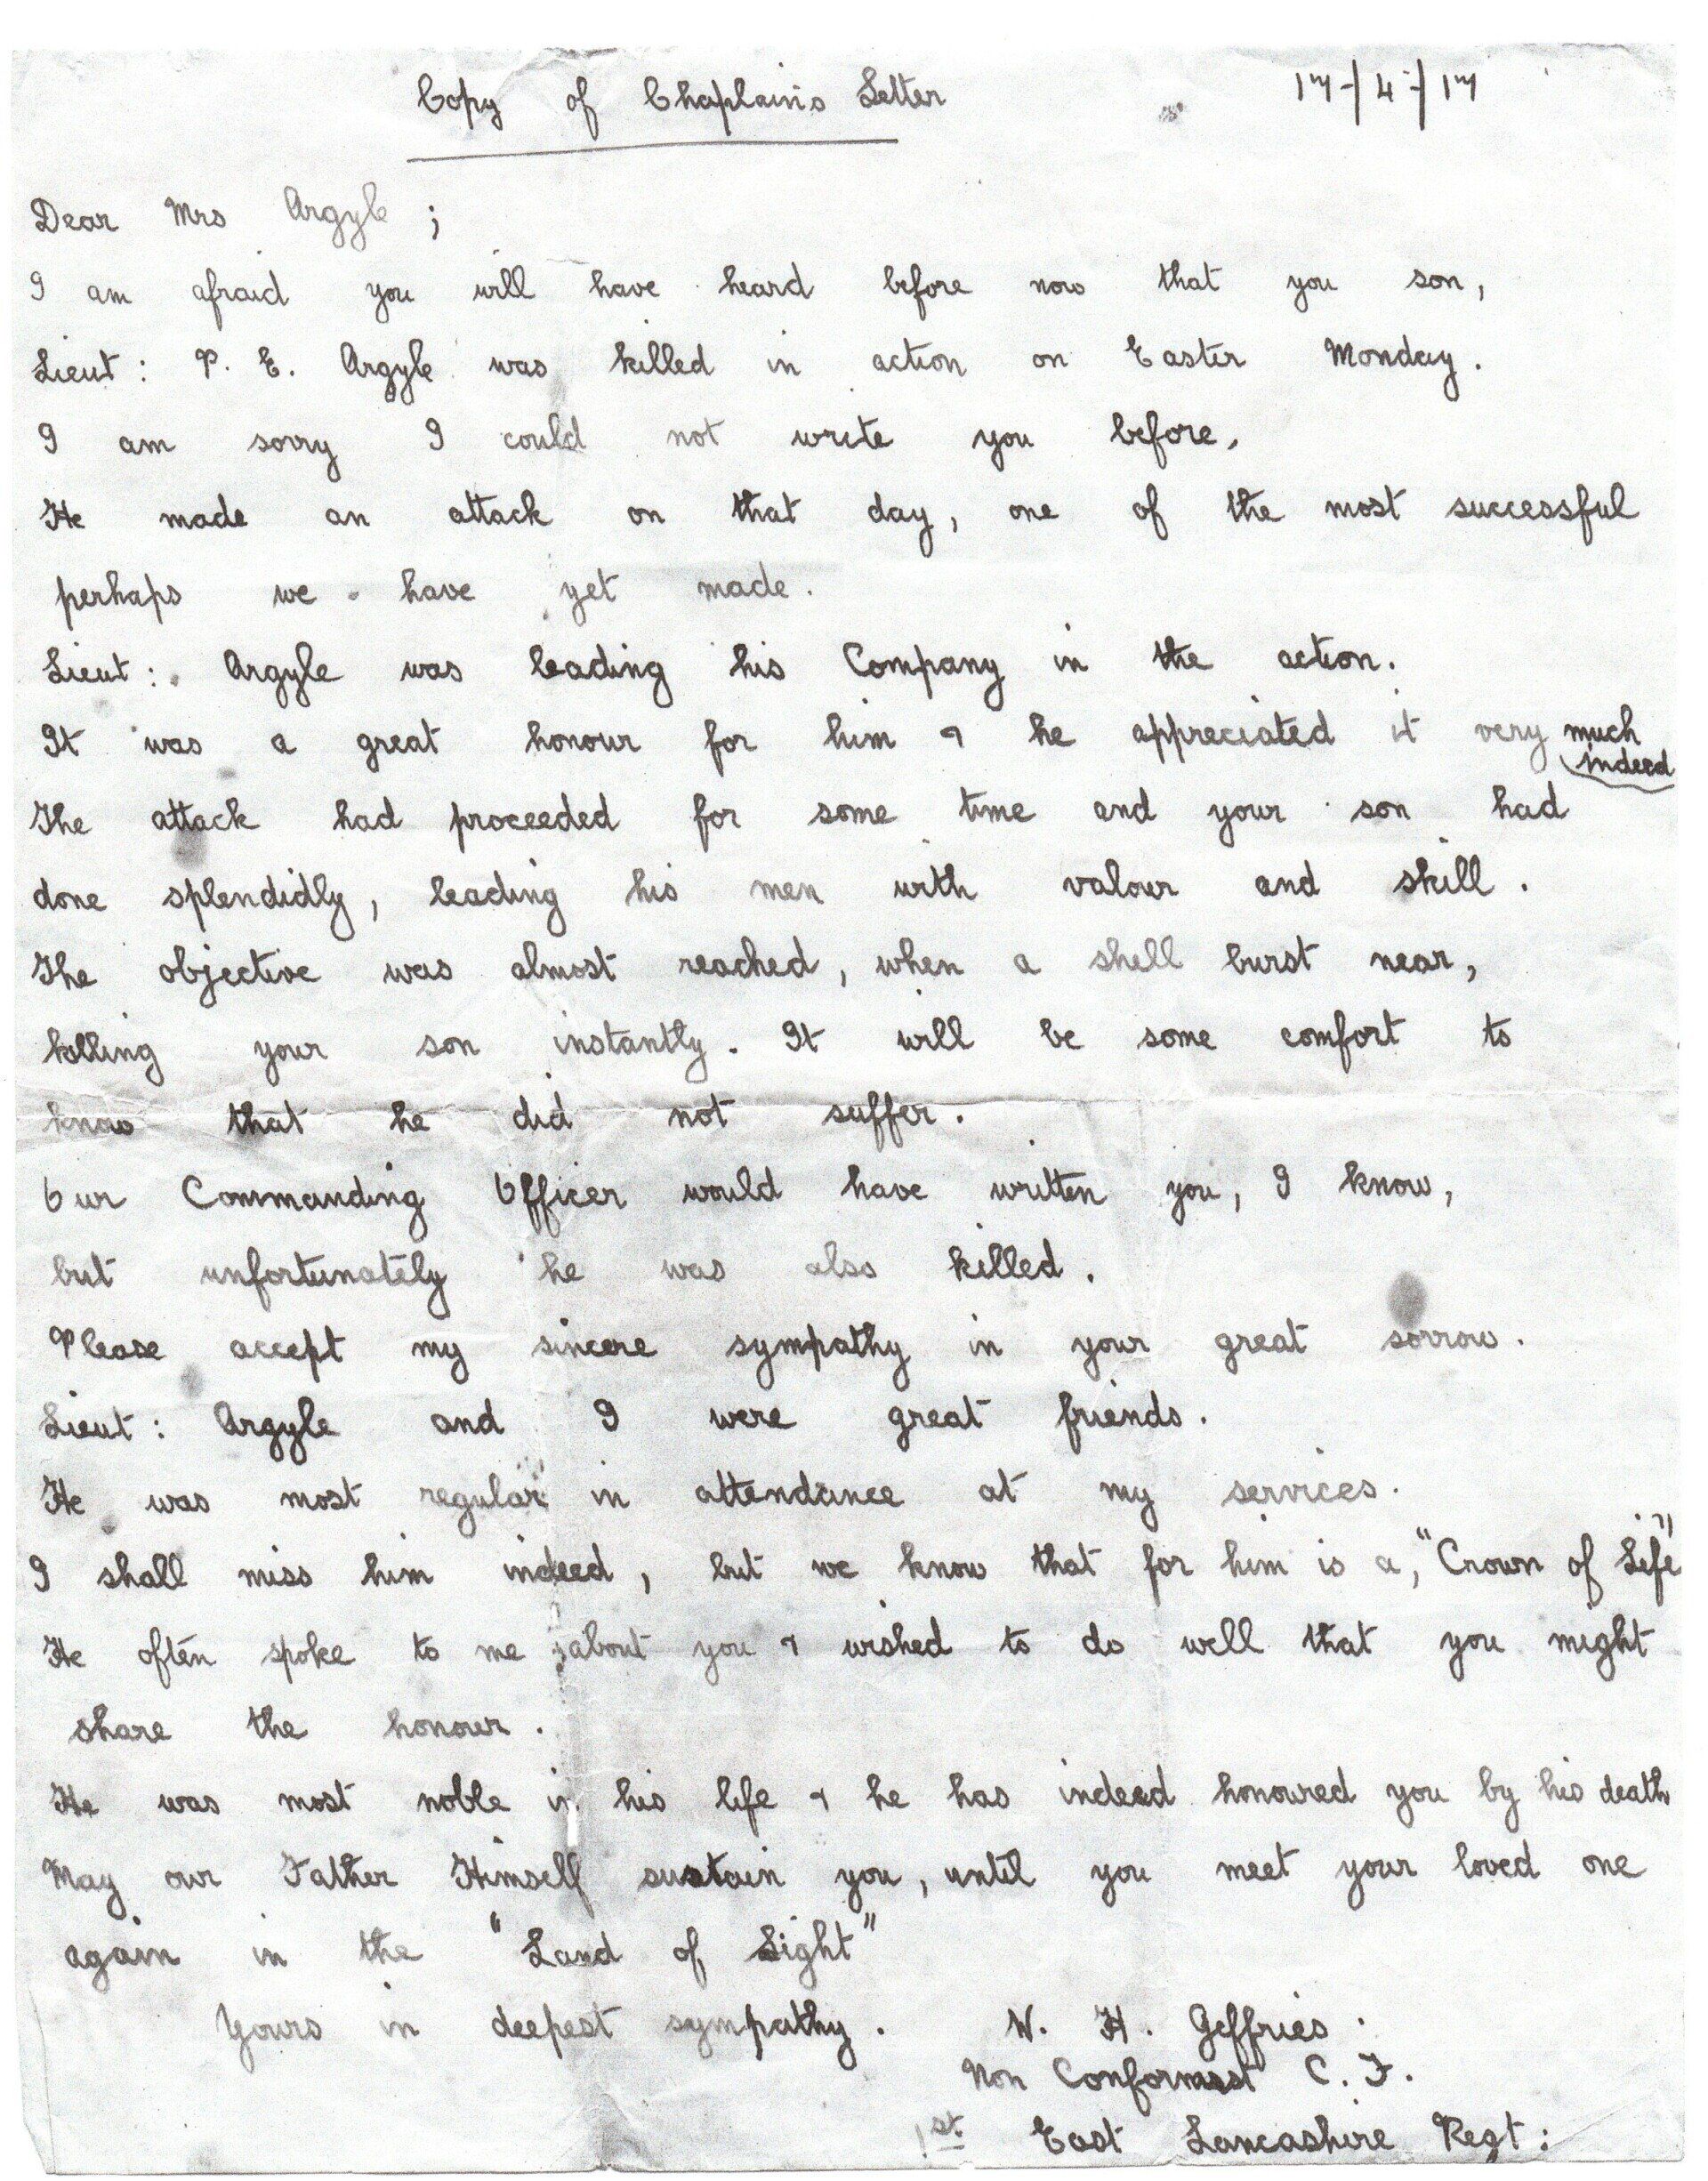 Copy of Chaplain's Letter 17/4/17
Dear Mrs Argyle ;
I am afraid you will have heard before now that you son,
Lieut : P. E. Argyle was killed in action on Easter Monday.
I am sorry I could not write you before.
He made an attack on that day, one of the most successful
perhaps we have yet made.
Lieut : Argyle was leading his Company in the action.
It was a great honour for him & he appreciated it very much
indeed
The attack had proceeded for some time and your son had
done splendidly, leading his men with valour and skill.
The objective was almost reached, when a shell burst near,
killing your son instantly. It will be some comfort to
know that he did not suffer.
Our Commanding Officer would have written you, I know,
but unfortunately he was also killed.
Please accept my sincere sympathy in your great sorrow.
Lieut : Argyle and I were great friends.
He was most regular in attendance at my services.
I shall miss him indeed, but we know that for him is a, "Crown of Life"
He often spoke to me about you & wished to do well that you might
share the honour.
He was most noble in his life & he has indeed honoured you by his death
May our Father Himself sustain you, until you meet your loved one
again in the "Land of Light"
Yours in deepest sympathy. W. H. Geffries.
Non Conformist C. F.
1st East Lancashire Regt :